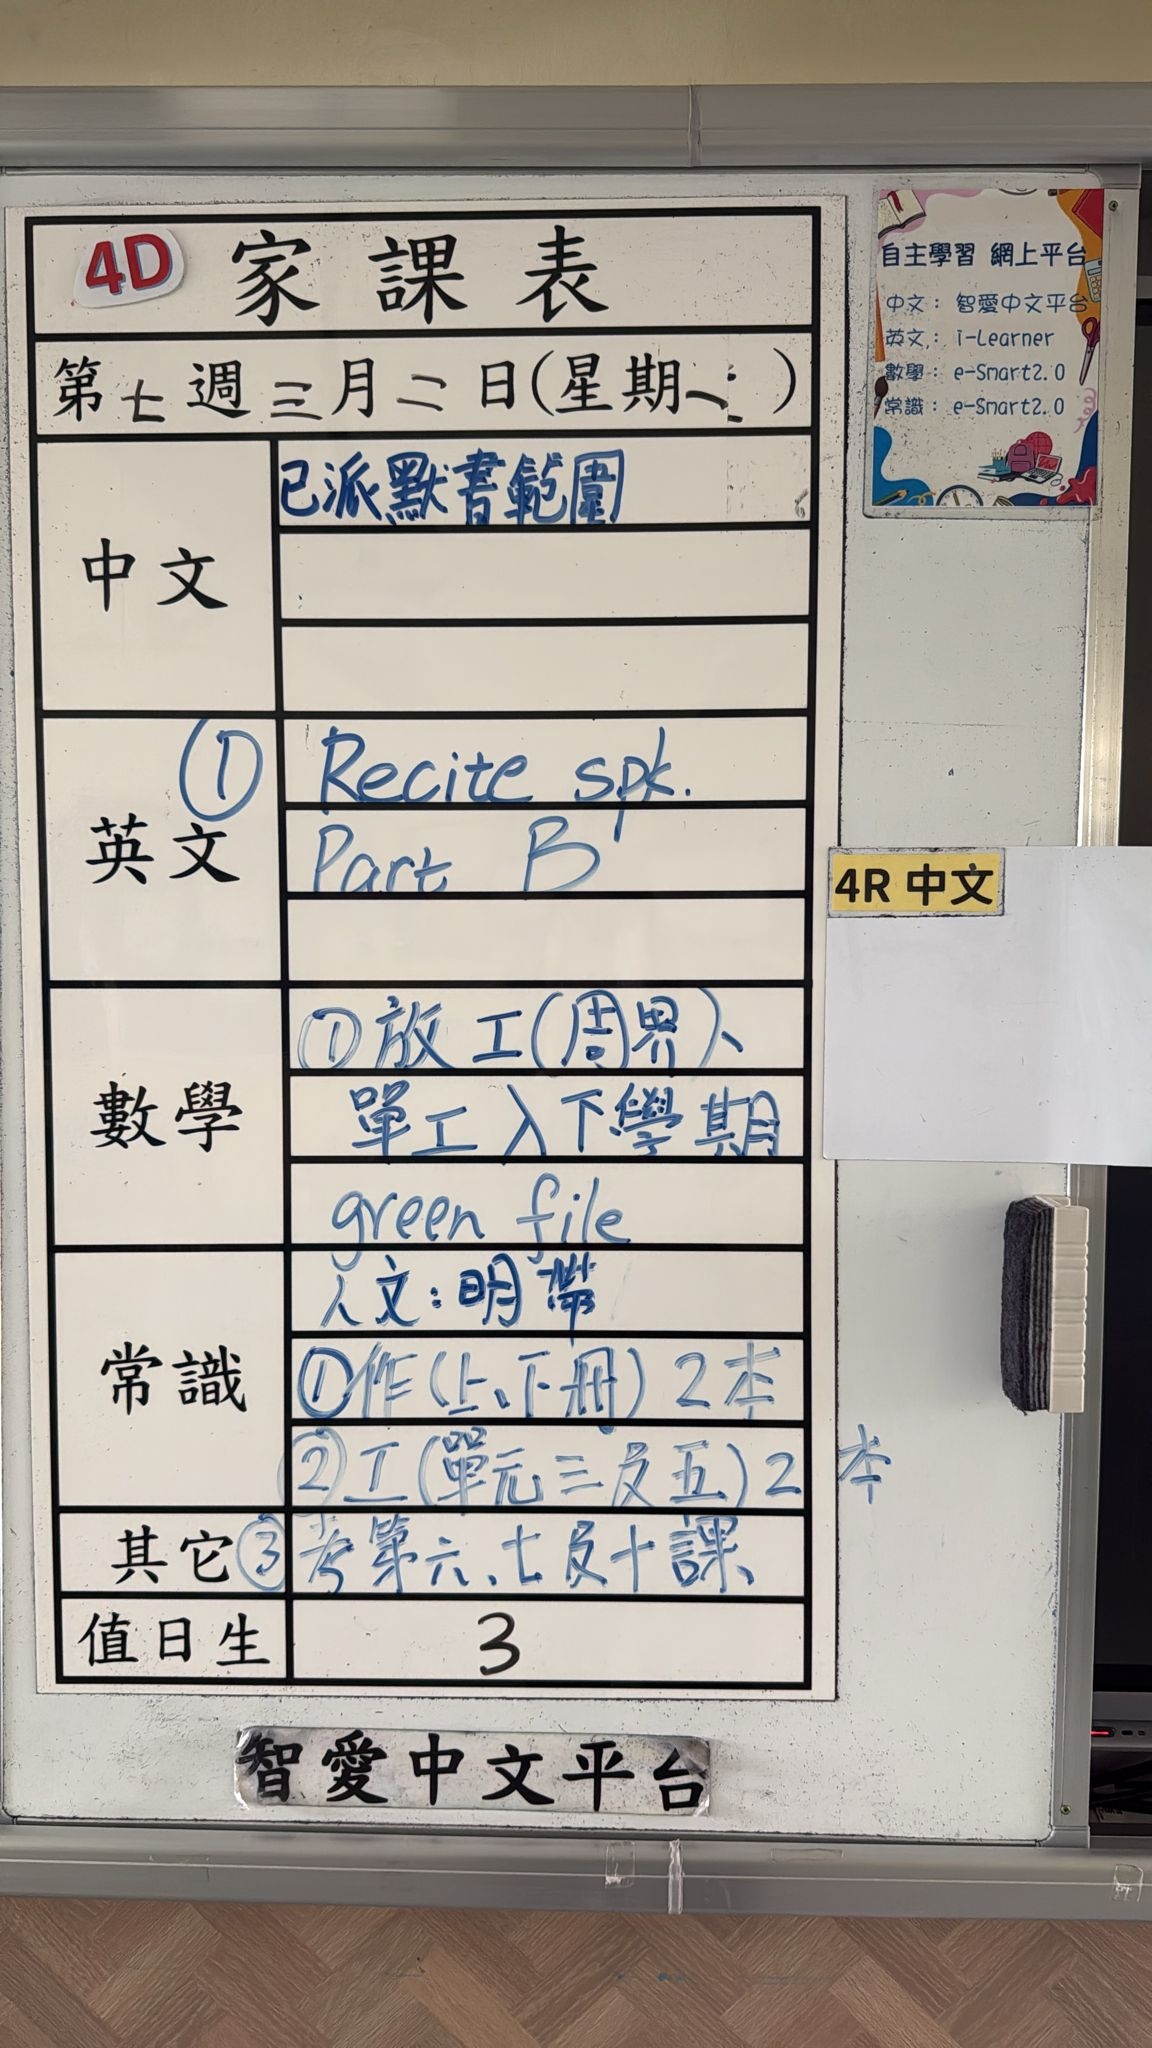 4D 家課表
第七週三月二日(星期一)
中文
已派默書範圍
英文
① Recite spk.
Part B
數學
①放工(周界)、
單工入下學期
green file
常識
人文:明帶
①作(上、下冊)2本
②工(單元三及五)2本
其它
③考第六、七及十課
值日生
3
智愛中文平台
自主學習 網上平台
中文: 智愛中文平台
英文: i-Learner
數學: e-Smart2.0
常識: e-Smart2.0
4R 中文